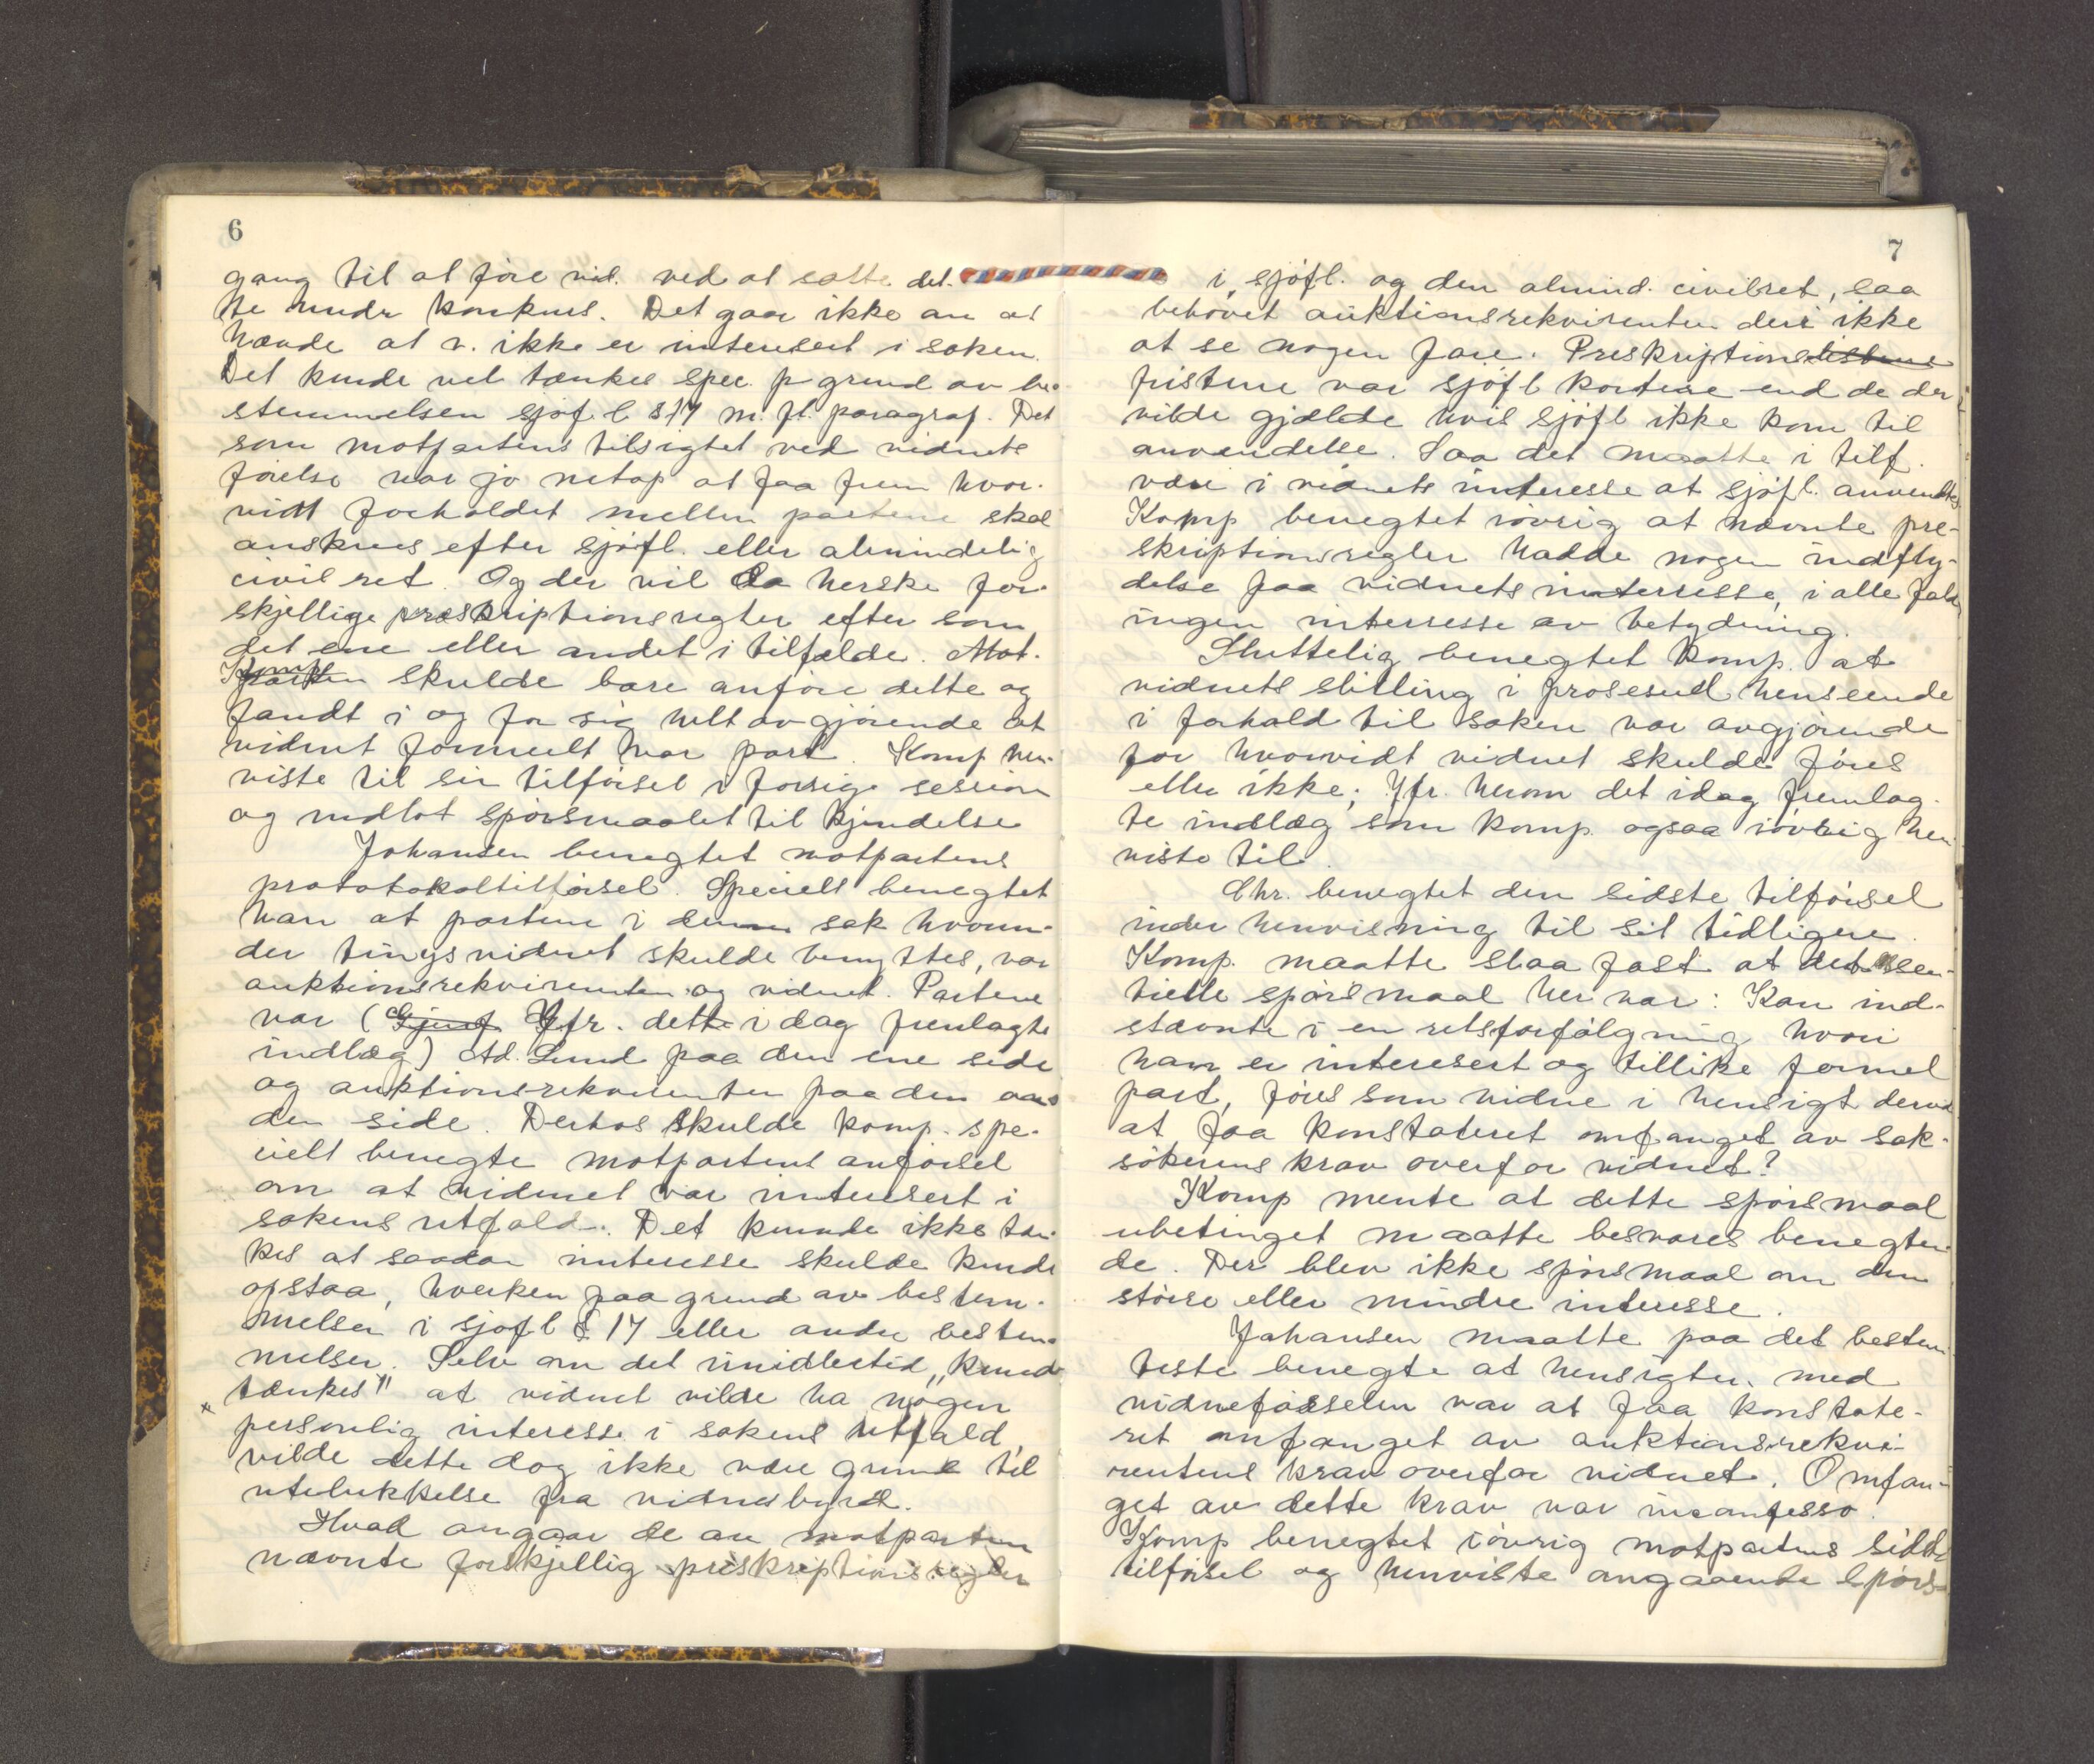 6
gang til at føre vid. ved at sætte det-
te under konkurs. Det gaar ikke an at
hævde at v. ikke er interesert i saken.
Det kunde vel tænkes spec. p grund av be-
stemmelsen sjøf.l § 17 m. fl. paragraf. Det
som motpartens tilsigtet ved vidnets
førelse var jo netop at faa frem hvor-
vidt forholdet mellem partene skal
anskues efter sjøfl. eller almindelig
civilret. Og der vil da herske for-
skjellige preskriptionsregler efter som
det ene eller andet i tilfælde. Mot-
parten Komp. skulde bare anføre dette og
fandt i og for sig helt avgjørende at
vidnet formeelt var part. Komp hen-
viste til sin tilførsel i forrige session
og indlot spørsmaalet til kjendelse
Johansen benegtet motpartens
protokoltilførsel. Specielt benegtet
han at partene i denne sak hvorun-
der tingsvidnet skulde benyttes, var
auktionsrekvirenten og vidnet. Partene
var (Gjenf Jfr. dette i dag fremlagte
indlæg) Ad. Lund paa den ene side
og auktionsrekvirenten paa den an-
den side. Derhos skulde komp. spe-
cielt benegte motpartens anførsel
om at vidnet var interesert i
sakens utfald. Det kunde ikke tæn-
kes at saadan interesse skulde kunde
opstaa, hverken paa grund av bestem-
melsen i sjøfl § 17 eller andre bestem-
melser. Selv om det imidlertid „kunde
tænkes" at vidnet vilde ha nogen
personlig interesse i sakens utfald,
vilde dette dog ikke være grund til
utelukkelse fra vidnesbyrd.
Hvad angaar de av motparten
nævnte forskjellig preskriptionsregler
7
i sjøfl. og den almind. civilret, saa
behøvet auktionsrekvirenten deri ikke
at se nogen fare. Preskriptionslistene
fristene var sjøfl kortere end de der
vilde gjælde hvis sjøfl ikke kom til
anvendelse. Saa det maatte i tilf.
være i vidnets interesse at sjøfl. anvendtes
Komp benegtet iøvrig at nævnte pre-
skriptionsregler hadde nogen indfly-
delse paa vidnets interresse, i alle fald
ingen interresse av betydning.
Sluttelig benegtet komp. at
vidnets stilling i prosesuel henseende
i forhold til saken var avgjørende
for hvorvidt vidnet skulde føres
eller ikke; Jfr. herom det idag fremlag-
te indlæg som komp. ogsaa iøvrig hen-
viste til.
Chr. benegtet den sidste tilførsel
under henvisning til sit tidligere.
Komp. maatte slaa fast at det essen-
tielle spørsmaal her var: Kan ind-
stævnte i en retsforfølgning hvori
han er interesert og tillike formel
part, føres som vidne i hensigt derved
at faa konstateret omfanget av sak-
søkerens krav overfor vidnet?
Komp mente at dette spørsmaal
ubetinget maatte besvares benegten-
de. Der blev ikke spørsmaal om den
større eller mindre interesse.
Johansen maatte paa det bestem-
teste benegte at hensigten med
vidneførselen var at faa konstate-
ret omfanget av auktionsrekvi-
rentens krav overfor vidnet. Omfan-
get av dette krav var inconfesso.
Komp benegtet iøvrig motpartens sidste
tilførsel og henviste angaaende spørs-